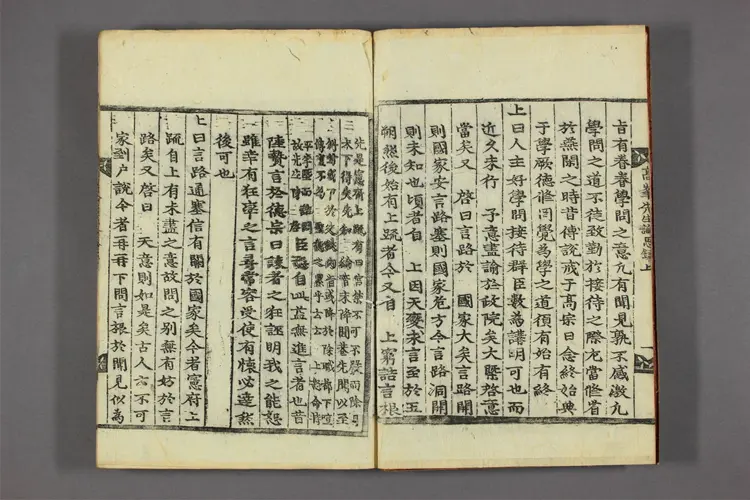 旨有眷眷學問之意凡有聞見孰不感激凡
學問之道不徒致勤於接待之際尤當修省
於燕閑之時昔傅說戒于高宗曰念終始典
于學厥德修罔覺為學之道須有始有終
上曰人主好學問接待群臣數為講明可也而
近久未行 予意盡諭於政院矣大槩啓意
當矣又 啓曰言路於 國家大矣言路開
則國家安言路塞則國家危方今言路洞開
則未知也頃者自 上因天變求言至於五
朔然後始有上疏者今又自 上窮詰言根
先是憲府上疏有曰宮禁不可不嚴而除目
陸贄言於德宗曰諫者之狂誣明我之能恕
雖幸有狂宰之言尋常容受使有懷必達然
後可也
上曰言路通塞信有關於國家矣今者憲府上
疏自上有未盡之意故問之別無有妨於言
路矣又 啓曰 天意則如是矣古人云不可
家到户說今者再再下問言根於聞見似為